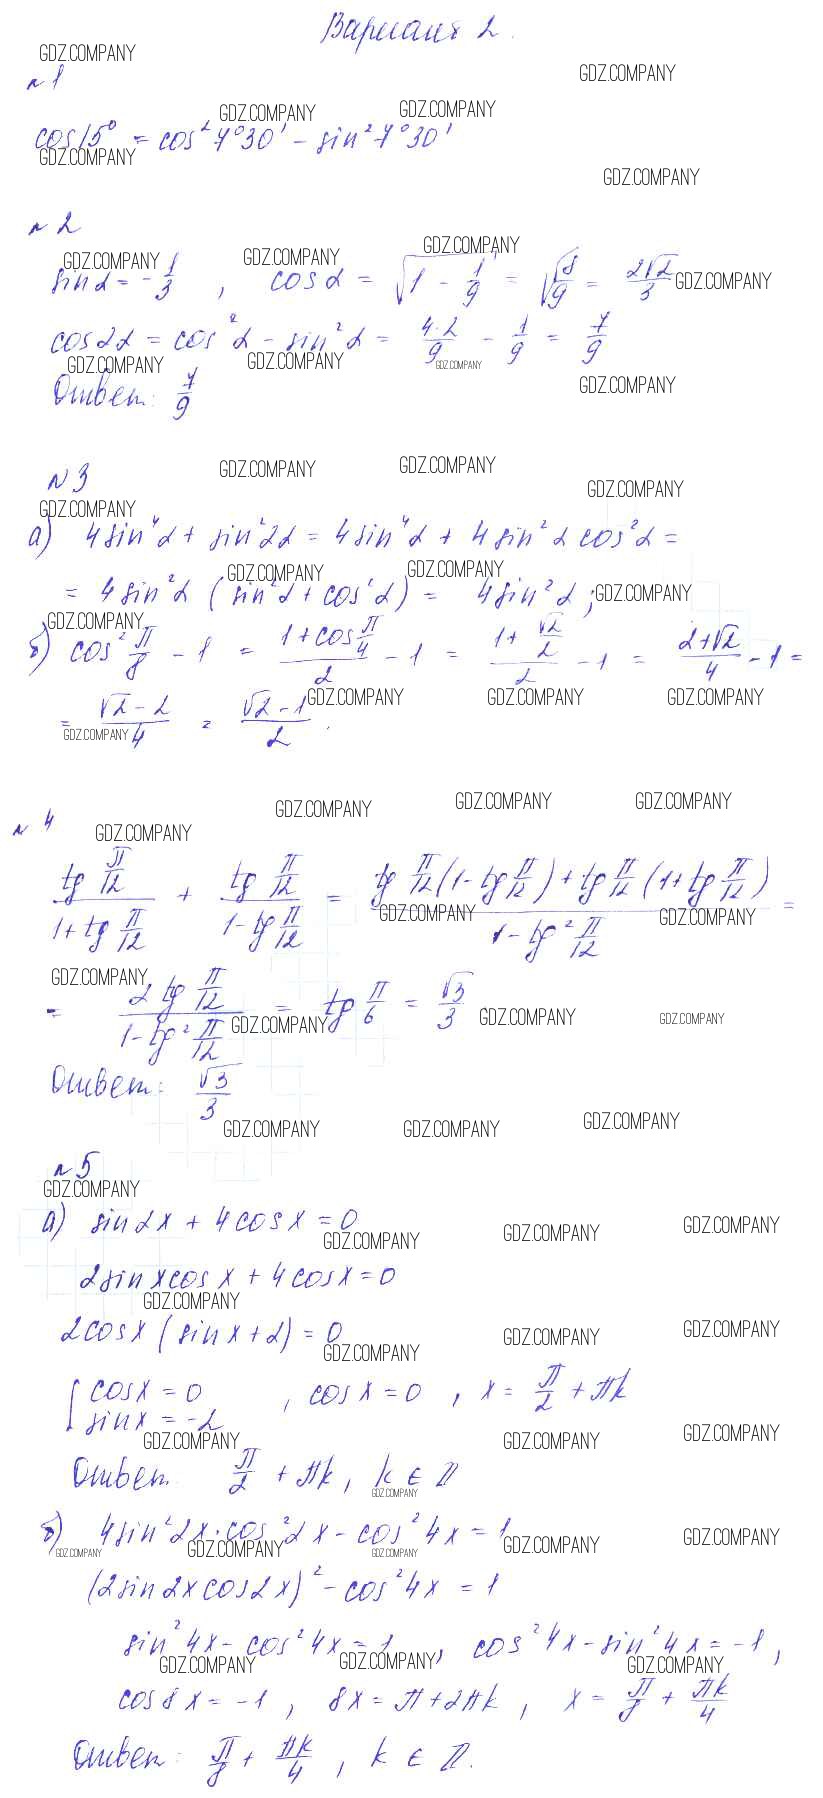 Вариант 2.
№1
cos15° = cos²7°30' - sin²7°30'
№2
sinα = -1/3 , cosα = √(1 - 1/9) = √(8/9) = 2√2/3
cos2α = cos²α - sin²α = 4·2/9 - 1/9 = 7/9
Ответ: 7/9
№3
а) 4sin⁴α + sin²2α = 4sin⁴α + 4sin²α cos²α =
= 4sin²α (sin²α + cos²α) = 4sin²α;
б) cos² π/8 - 1 = (1 + cos π/4)/2 - 1 = (1 + √2/2)/2 - 1 = (2+√2)/4 - 1 =
= (√2 - 2)/4 = (√2 - 1)/2.
№4
tg π/12 / (1 + tg π/12) + tg π/12 / (1 - tg π/12) = (tg π/12 (1 - tg π/12) + tg π/12 (1 + tg π/12)) / (1 - tg² π/12) =
= 2 tg π/12 / (1 - tg² π/12) = tg π/6 = √3/3
Ответ: √3/3
№5
а) sin2x + 4cosx = 0
2sinxcosx + 4cosx = 0
2cosx (sinx + 2) = 0
[ cosx = 0 , cosx = 0 , x = π/2 + πk
sinx = -2
Ответ: π/2 + πk, k ∈ Z
б) 4sin²2x·cos²2x - cos²4x = 1
(2sin2xcos2x)² - cos²4x = 1
sin²4x - cos²4x = 1, cos²4x - sin²4x = -1,
cos8x = -1, 8x = π + 2πk, x = π/8 + πk/4
Ответ: π/8 + πk/4, k ∈ Z.
GDZ.COMPANY